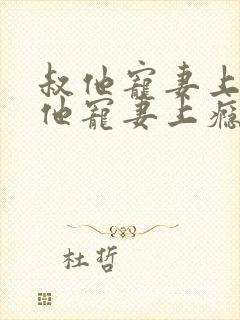 叔他寵妻上
他寵妻上癮
杜哲